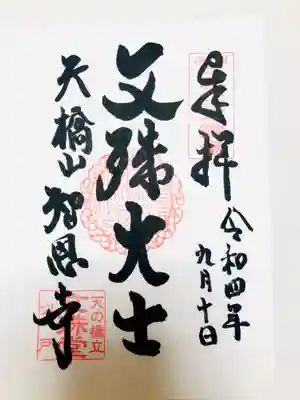 奉拝
令和四年
九月十日
文殊大士
天橋山智恩寺
天の橋立
文殊堂